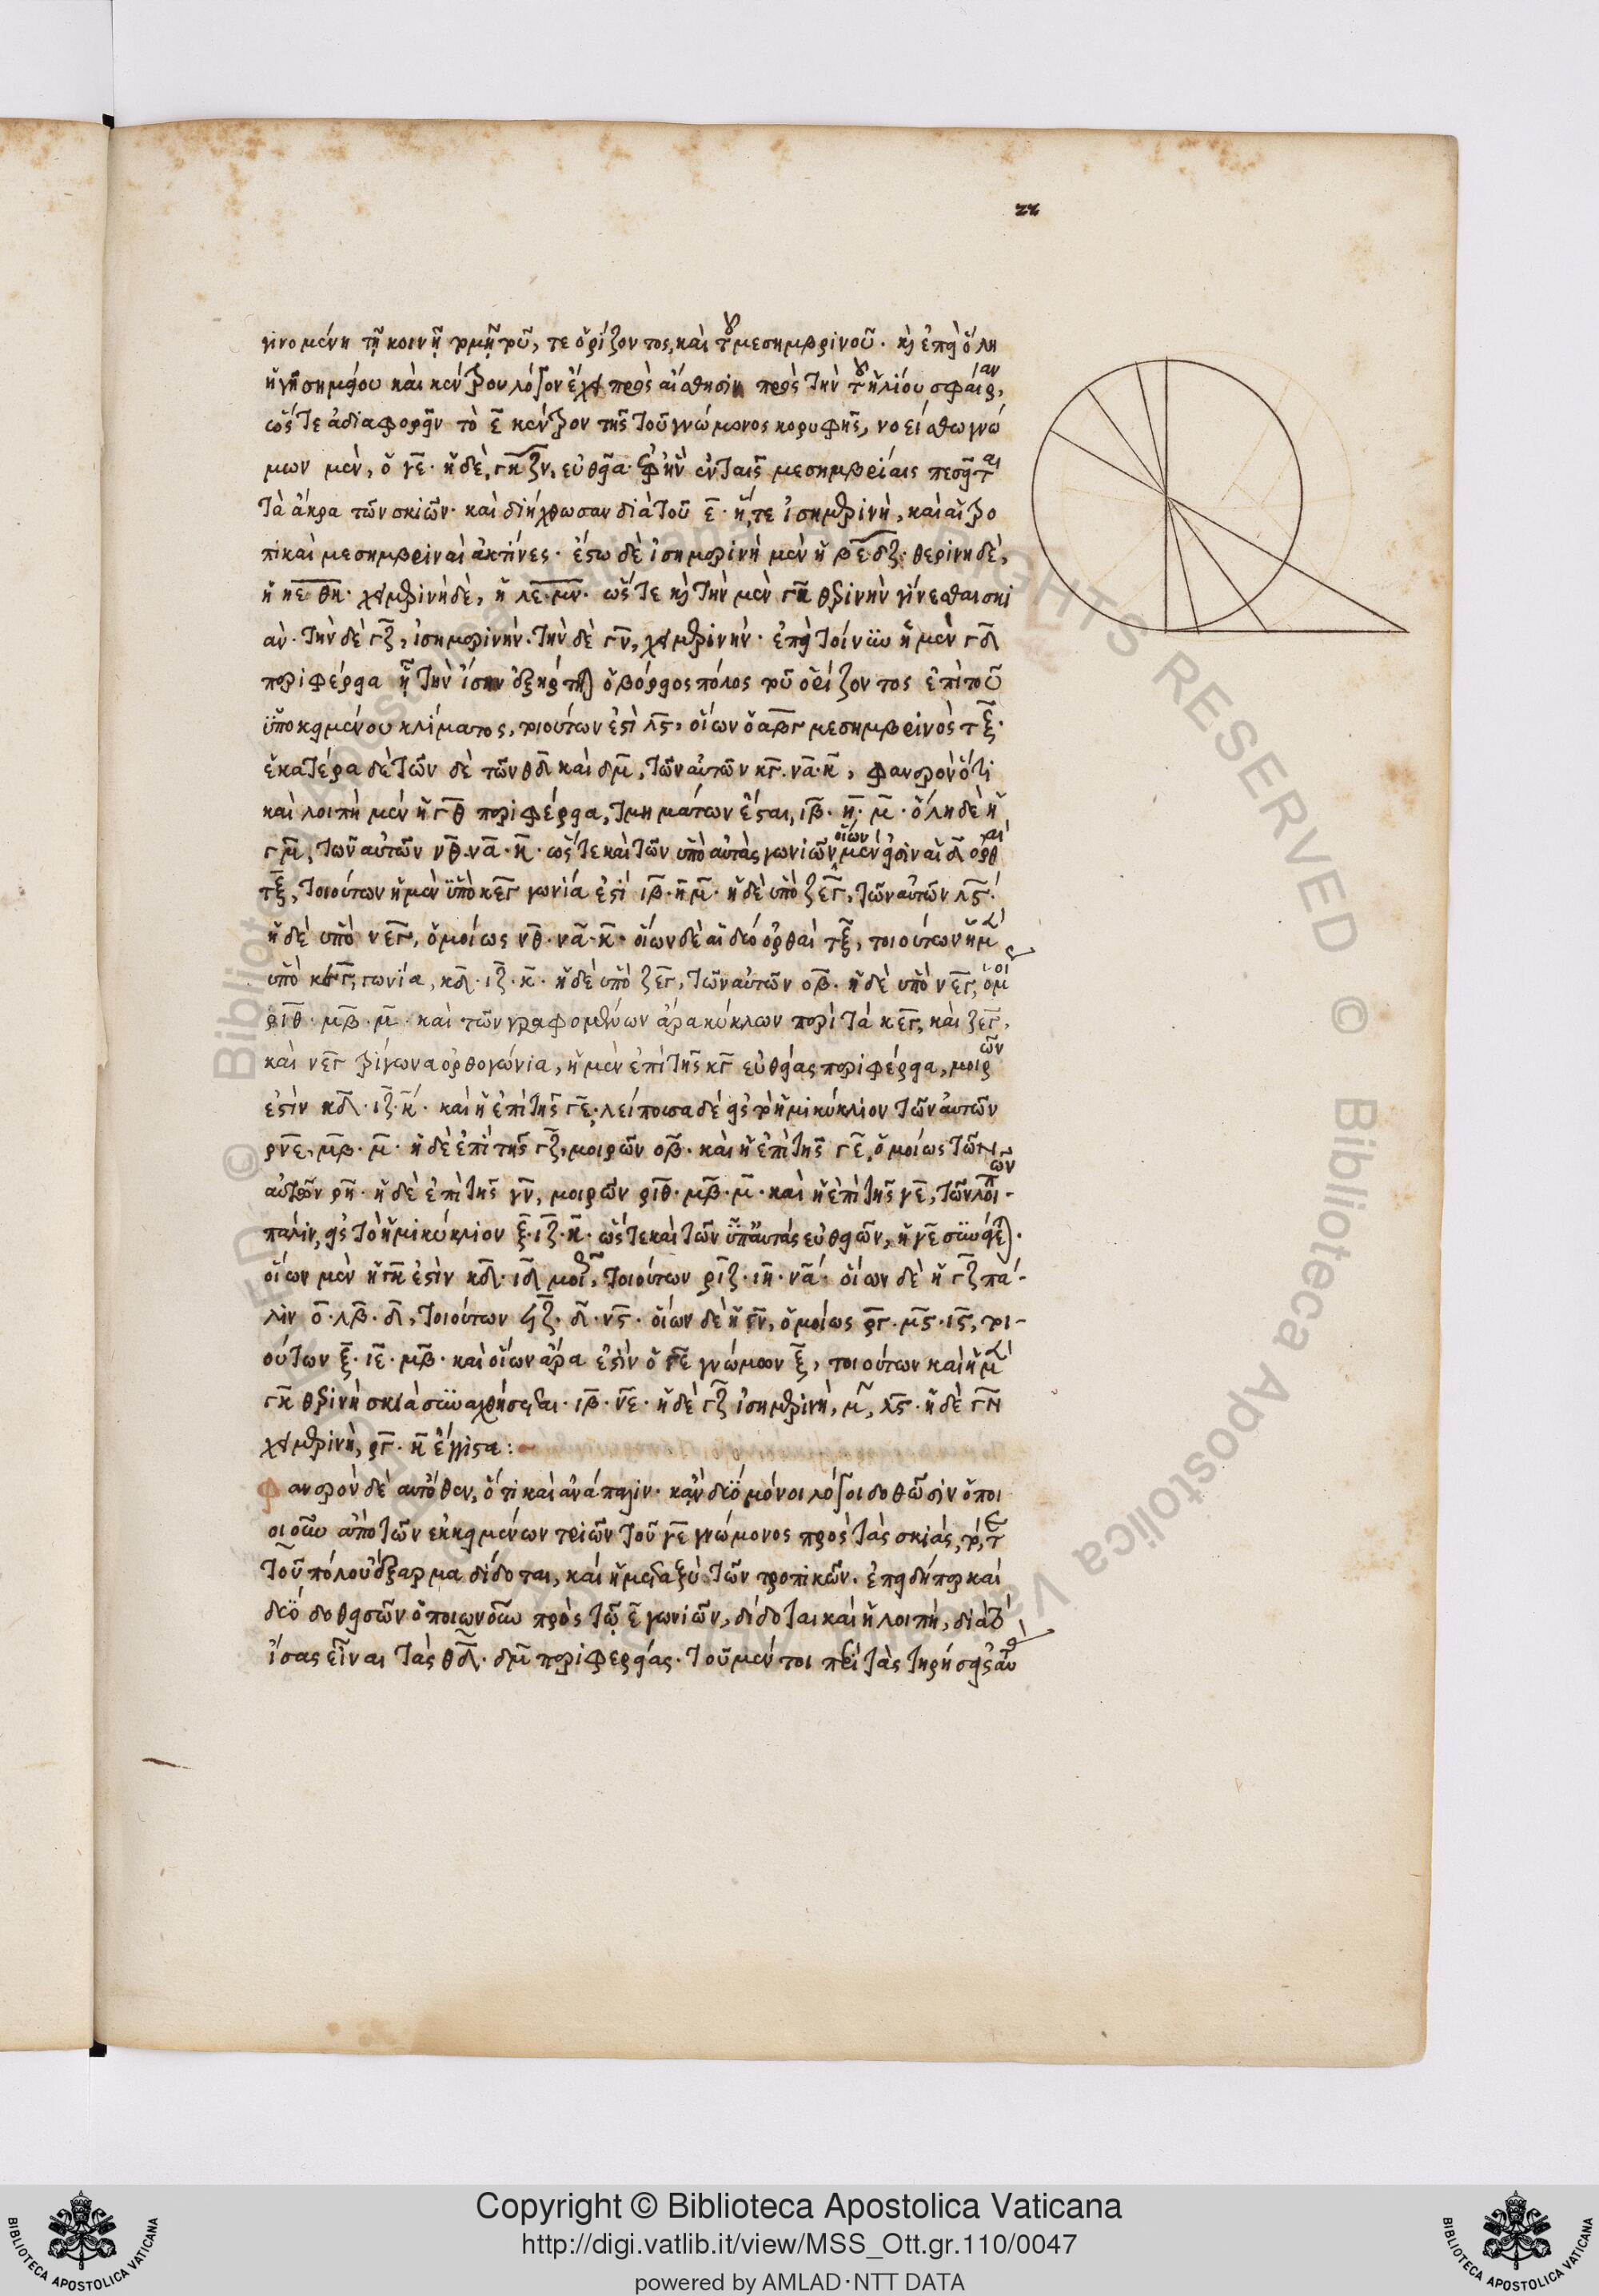 22
γινομένη τῇ κοινῇ τομῇ τοῦ, τε ὁρίζοντος, καὶ τοῦ μεσημβρινοῦ. καὶ ἐπεὶ ὅλη
ἡ γῆ σημείου καὶ κέντρου λόγον ἔχει πρὸς αἴσθησιν πρὸς τὴν τοῦ ἡλίου σφαῖραν,
ὥστε ἀδιαφορεῖν τὸ ε κέντρον τῆς τοῦ γνώμονος κορυφῆς, νοείσθω γνώ
μων μὲν, ὁ γε. ἡ δὲ, γκζν, εὐθεῖα. ἐφ' ἣν ἐν ταῖς μεσημβρίαις πεσεῖται
τὰ ἄκρα τῶν σκιῶν. καὶ διήχθωσαν διὰ τοῦ ε. ἥ, τε ἰσημερινὴ, καὶ αἱ τρο
πικαὶ μεσημβριναὶ ἀκτίνες. ἔστω δὲ ἰσημερινὴ μὲν ἡ βεδζ. θερινὴ δὲ,
ἡ ηεθκ. χειμερινὴ δὲ, ἡ λεμν. ὥστε καὶ τὴν μὲν γκ θερινὴν γίνεσθαι σκι
άν. τὴν δὲ γζ, ἰσημερινήν. τὴν δὲ γν, χειμερινήν. ἐπεὶ τοίνυν ἡ μὲν γδ
περιφέρεια ᾗ τὴν ἴσην ἐξήρτηται ὁ βόρειος πόλος τοῦ ὁρίζοντος ἐπὶ τοῦ
ὑποκειμένου κλίματος, τοιούτων ἐστὶ λϛ, οἵων ὁ αβγ μεσημβρινὸς τξ.
ἑκατέρα δὲ τῶν δὲ τῶν θδ καὶ δμ, τῶν αὐτῶν κγ. να. κ, φανερὸν ὅτι
καὶ λοιπὴ μὲν ἡ γθ περιφέρεια, τμημάτων ἔσται, ιβ. η. μ. ὅλη δὲ ἡ
γμ, τῶν αὐτῶν νθ. να. κ. ὥστε καὶ τῶν ὑπὸ αὐτὰς γωνιῶν οἵων μέν εἰσιν αἱ δ ὀρθαὶ
τξ, τοιούτων ἡ μὲν ὑπὸ κεγ γωνία ἐστὶ ιβ. η. μ. ἡ δὲ ὑπὸ ζεγ, τῶν αὐτῶν λϛ.
ἡ δὲ ὑπὸ νεγ, ὁμοίως νθ. να. κ. οἵων δὲ αἱ δύο ὀρθαὶ τξ, τοιούτων ἡ μὲν
ὑπὸ κεγ, γωνία, κδ. ιζ. κ. ἡ δὲ ὑπὸ ζεγ, τῶν αὐτῶν οβ. ἡ δὲ ὑπὸ νεγ, ὁμοίως
ριθ. μβ. μ. καὶ τῶν γραφομένων ἄρα κύκλων περὶ τὰ κεγ, καὶ ζεγ,
καὶ νεγ τρίγωνα ὀρθογώνια, ἡ μὲν ἐπὶ τῆς κγ εὐθείας περιφέρεια, μοιρῶν
ἐστὶν κδ. ιζ. κ. καὶ ἡ ἐπὶ τῆς γε. λείπουσα δὲ εἰς τὸ ἡμικύκλιον τῶν αὐτῶν
ρνε, μβ. μ. ἡ δὲ ἐπὶ τῆς γζ, μοιρῶν οβ. καὶ ἡ ἐπὶ τῆς γε, ὁμοίως τῶν
αὐτῶν ρη. ἡ δὲ ἐπὶ τῆς γν, μοιρῶν ριθ. μβ. μ. καὶ ἡ ἐπὶ τῆς γε, τῶν λοιπῶν
πάλιν, εἰς τὸ ἡμικύκλιον ξ. ιζ. κ. ὥστε καὶ τῶν ὑπ' αὐτὰς εὐθειῶν, ἡ γε
οἵων μὲν ἡ γκ ἐστὶν κδ. ιδ μοι, τοιούτων ριζ. ιη. να. οἵων δὲ ἡ γζ πά-
λιν ο. λβ. δ, τοιούτων ϟζ. δ. νϛ. οἵων δὲ ἡ γν, ὁμοίως ργ. μϛ. ιϛ, τοι-
ούτων ξ. ιε. μβ. καὶ οἵων ἄρα ἐστὶν ὁ γε γνώμων ξ, τοιούτων καὶ ἡ μὲν
γκ θερινὴ σκιὰ συναχθήσεται. ιβ. νε. ἡ δὲ γζ ἰσημερινὴ, μγ, λϛ. ἡ δὲ γν
χειμερινὴ, ργ. κ ἔγγιστα:
Φανερὸν δὲ αὐτόθεν, ὅτι καὶ ἀνάπαλιν. κἂν δύο μόνοι λόγοι δοθῶσιν ὁποι
οιοῦν ἀπὸ τῶν ἐκκειμένων τριῶν τοῦ γε γνώμονος πρὸς τὰς σκιάς, τό, τε
τοῦ πόλου ἔξαρμα δίδοται, καὶ ἡ μεταξὺ τῶν τροπικῶν. ἐπειδήπερ καὶ
δύο δοθεισῶν ὁποιωνοῦν πρὸς τῷ ε γωνιῶν, δίδοται καὶ ἡ λοιπὴ, διὰ τὸ
ἴσας εἶναι τὰς θδ. δμ περιφερείας. τοῦ μέντοι περὶ τὰς τηρήσεις αὐ
Copyright © Biblioteca Apostolica Vaticana
http://digi.vatlib.it/view/MSS_Ott.gr.110/0047
powered by AMLAD·NTT DATA